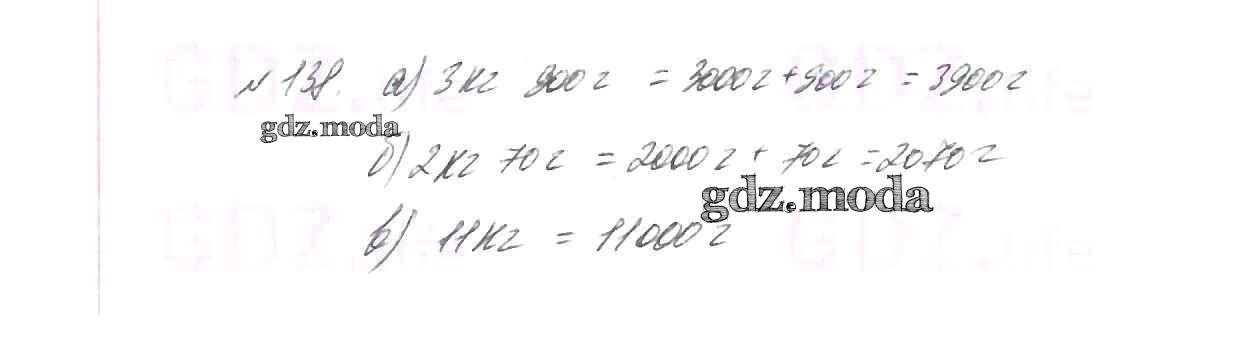 GDZ.life GDZ.life
№ 138. а) 3 кг 900 г = 3000 г + 900 г = 3900 г
gdz.moda
б) 2 кг 70 г = 2000 г + 70 г = 2070 г
gdz.moda
в) 11 кг = 11000 г
GDZ.life GDZ.life